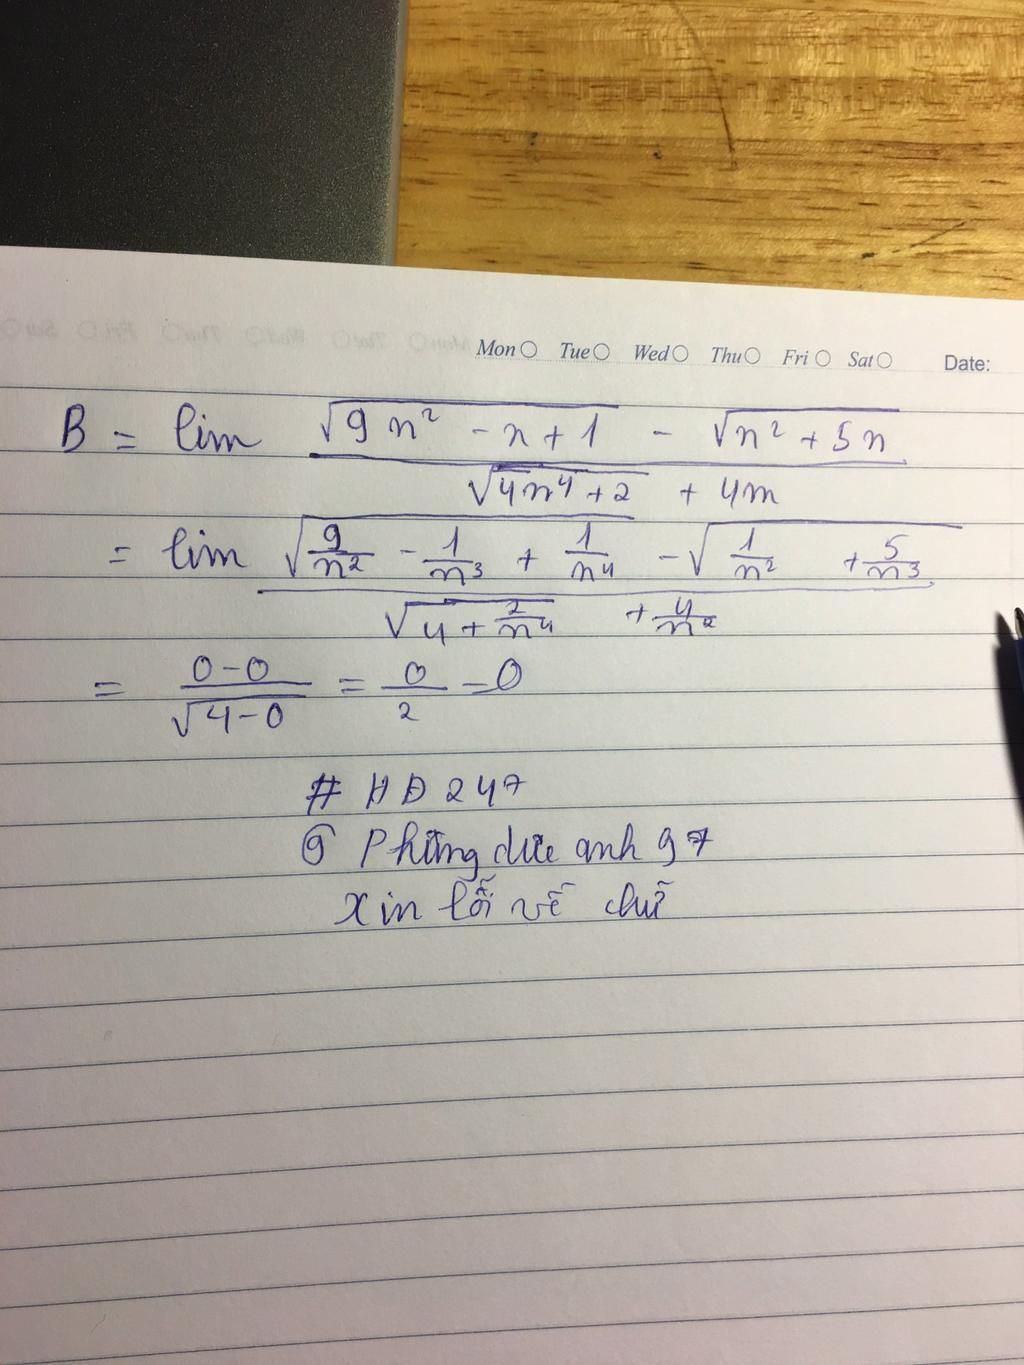 Mon Tue Wed Thu Fri Sat Date:
B = lim (√(9n² - n + 1) - √(n² + 5n)) / (√(4n⁴ + 2) + 4n)
= lim (√(9/n² - 1/n³ + 1/n⁴) - √(1/n² + 5/n³)) / (√(4 + 2/n⁴) + 4/n²)
= (0 - 0)/√(4 - 0) = 0/2 = 0
# HĐ247
Phùng đức anh 97
Xin lỗi về chữ